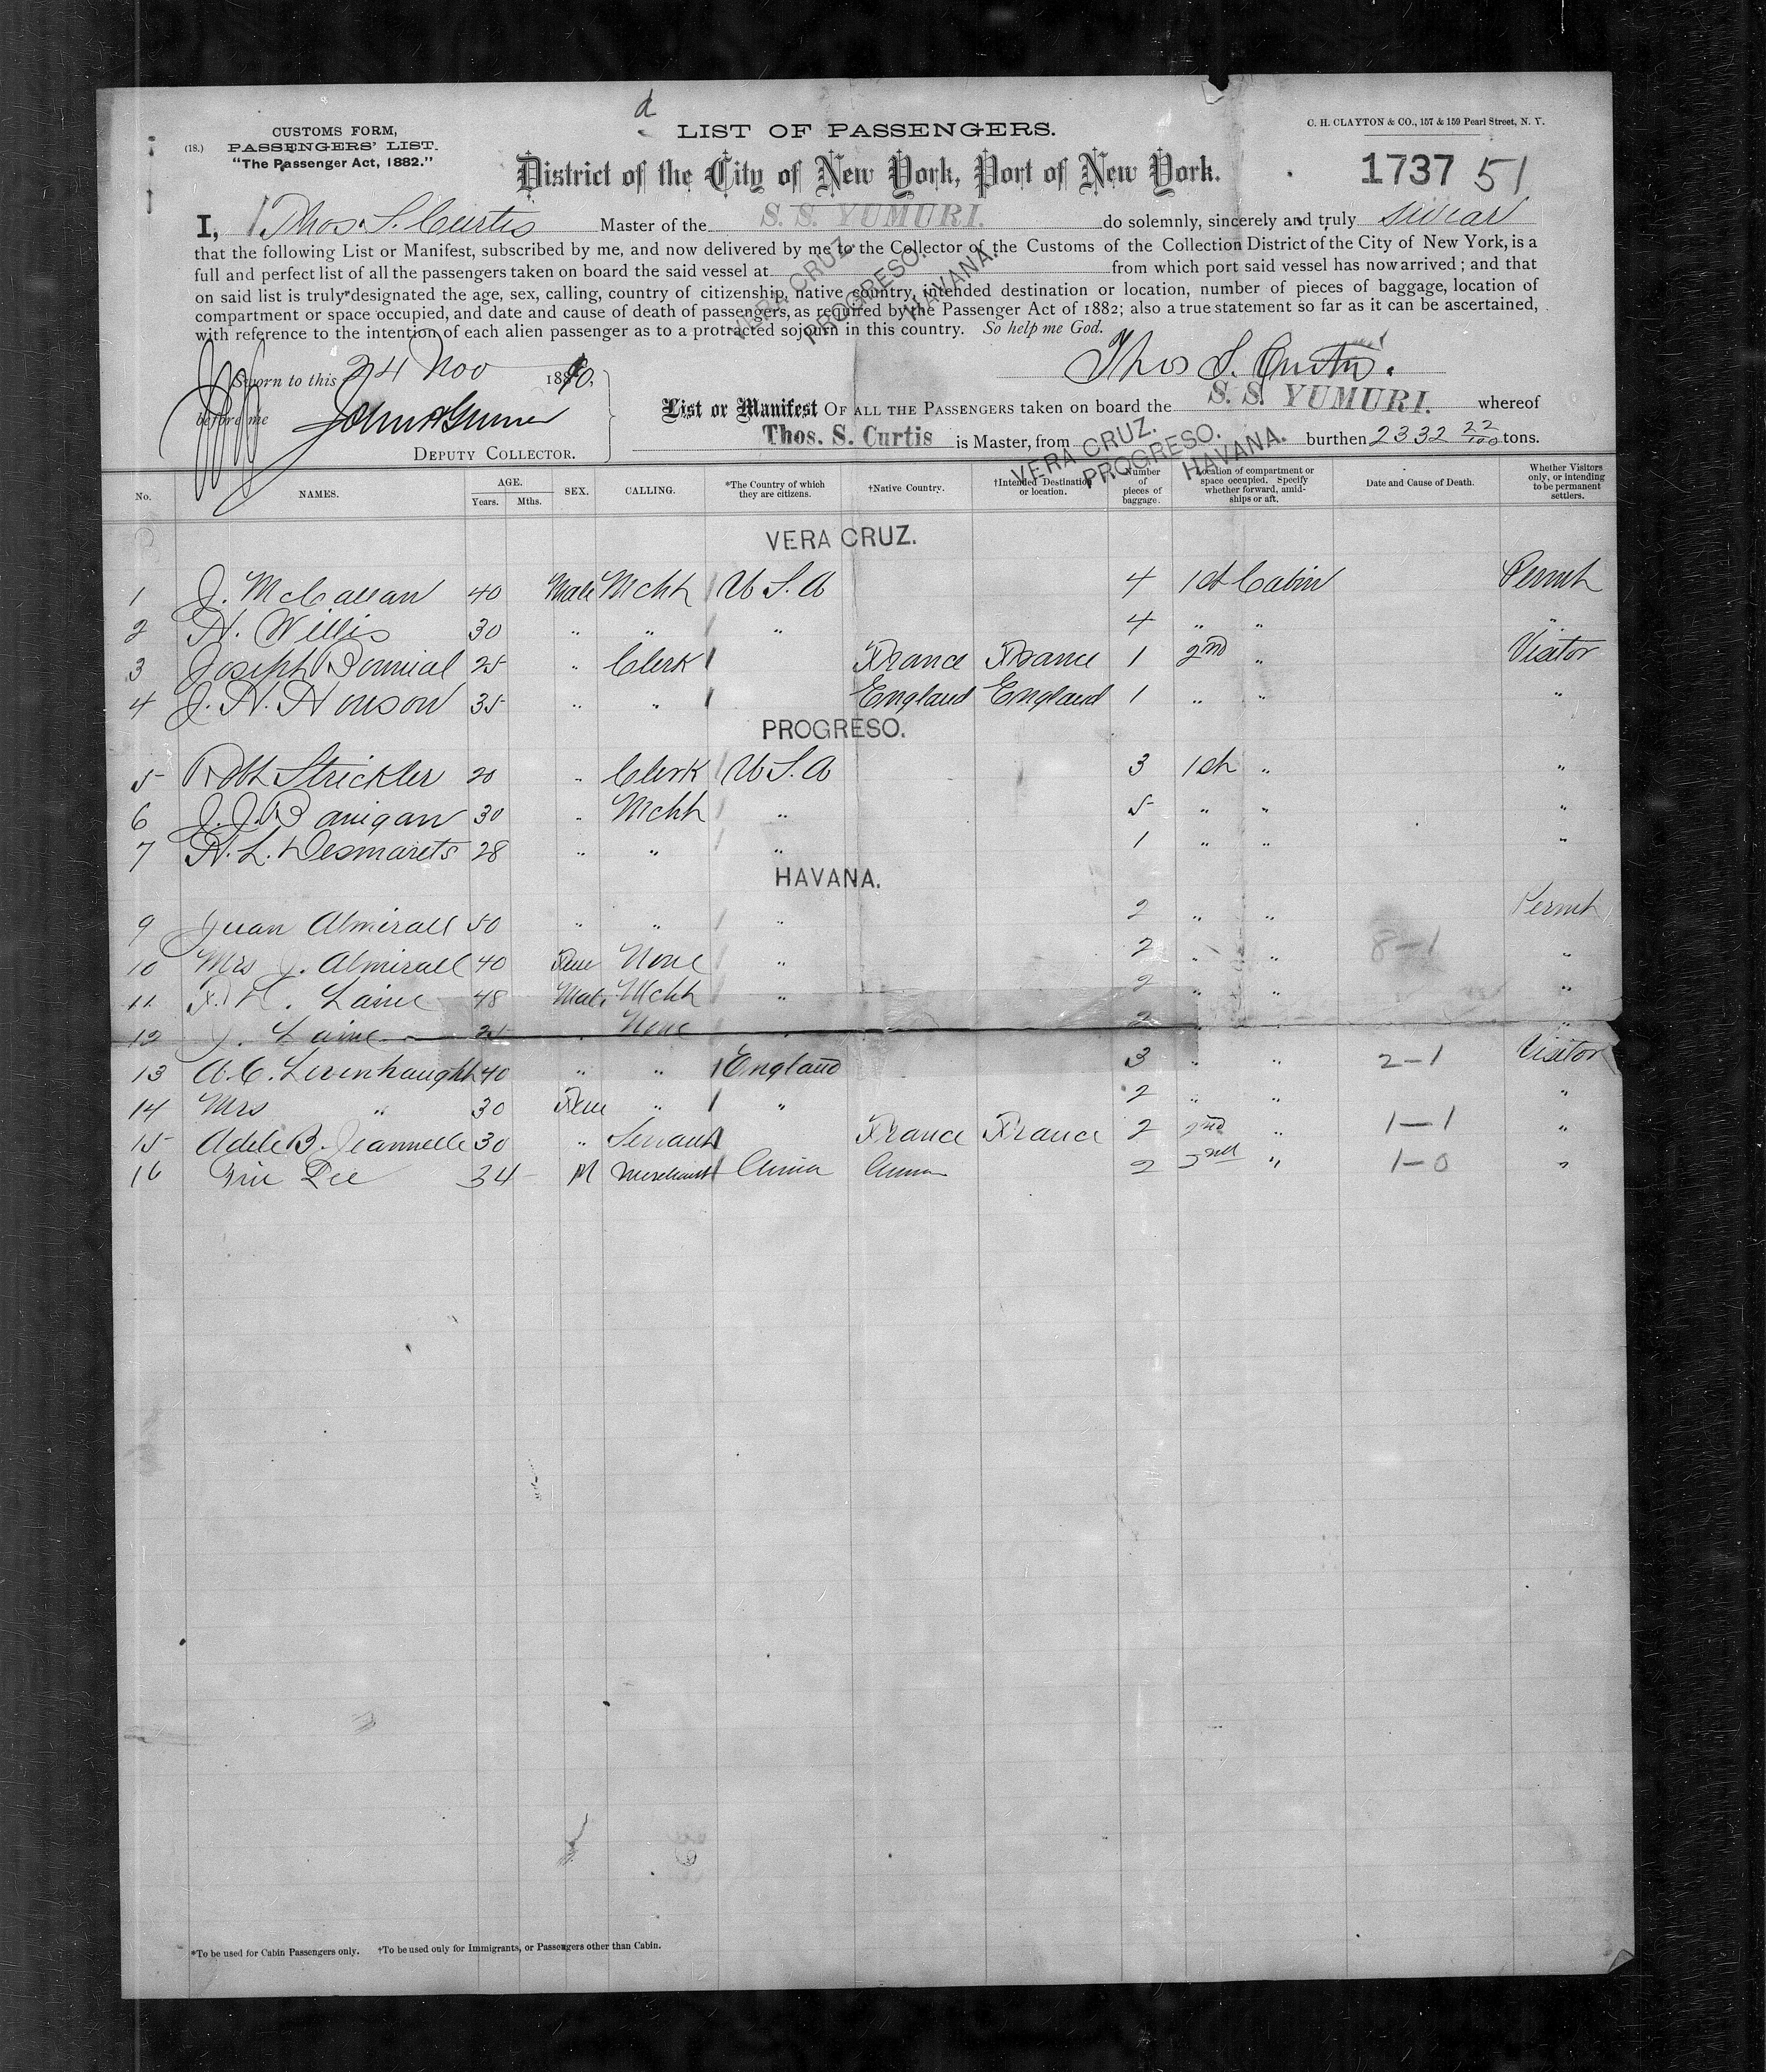 d
CUSTOMS FORM,
(18.) PASSENGERS' LIST.
"The Passenger Act, 1882."
LIST OF PASSENGERS.
C. H. CLAYTON & CO., 157 & 159 Pearl Street, N. Y.
District of the City of New York, Port of New York.
1737 51
I, Thos. S. Curtis Master of the S. S. YUMURI. do solemnly, sincerely and truly swear
that the following List or Manifest, subscribed by me, and now delivered by me to the Collector of the Customs of the Collection District of the City of New York, is a
full and perfect list of all the passengers taken on board the said vessel at VERA CRUZ. PROGRESO. HAVANA. from which port said vessel has now arrived; and that
on said list is truly designated the age, sex, calling, country of citizenship, native country, intended destination or location, number of pieces of baggage, location of
compartment or space occupied, and date and cause of death of passengers, as required by the Passenger Act of 1882; also a true statement so far as it can be ascertained,
with reference to the intention of each alien passenger as to a protracted sojourn in this country. So help me God.
Sworn to this 24 Nov 1890,
Thos S. Curtis.
before me
DEPUTY COLLECTOR.
List or Manifest OF ALL THE PASSENGERS taken on board the S. S. YUMURI. whereof
Thos. S. Curtis is Master, from VERA CRUZ. PROGRESO. HAVANA. burthen 2332 22/100 tons.
No. NAMES. AGE. Years. Mths. SEX. CALLING. *The Country of which they are citizens. †Native Country. †Intended Destination or location. Number of pieces of baggage. Location of compartment or space occupied. Specify whether forward, amidships or aft. Date and Cause of Death. Whether Visitors only, or intending to be permanent settlers.
VERA CRUZ.
1 J. McCallan 40 Male Mcht U S. A 4 1st Cabin Permt
2 H. Willis 30 " " " 4 " " "
3 Joseph 25 " Clerk France France 1 2nd " Visitor
4 J. H. Honson 35 " " England England 1 " " "
PROGRESO.
5 Robt Strickler 20 " Clerk U S. A 3 1st " "
6 J. J. Banigan 30 " Mcht " 5 " " "
7 H. L. Desmarets 28 " " " 1 " " "
HAVANA.
9 Juan Almirall 50 " " " 2 " " Permt
10 Mrs J. Almirall 40 Fem None " 2 " " 8-1 "
11 Laine 48 Male Mcht " 2 " " "
12 J. Laine None " 2 " " "
13 A. C. Levenhaught 40 " " England 3 " " 2-1 Visitor
14 Mrs " 30 Fem " " 2 " " "
15 Adele B. Jeannelle 30 " Servant France France 2 2nd " 1-1 "
16 Lee 34 M Merchant China China 2 2nd " 1-0 "
*To be used for Cabin Passengers only. †To be used only for Immigrants, or Passengers other than Cabin.